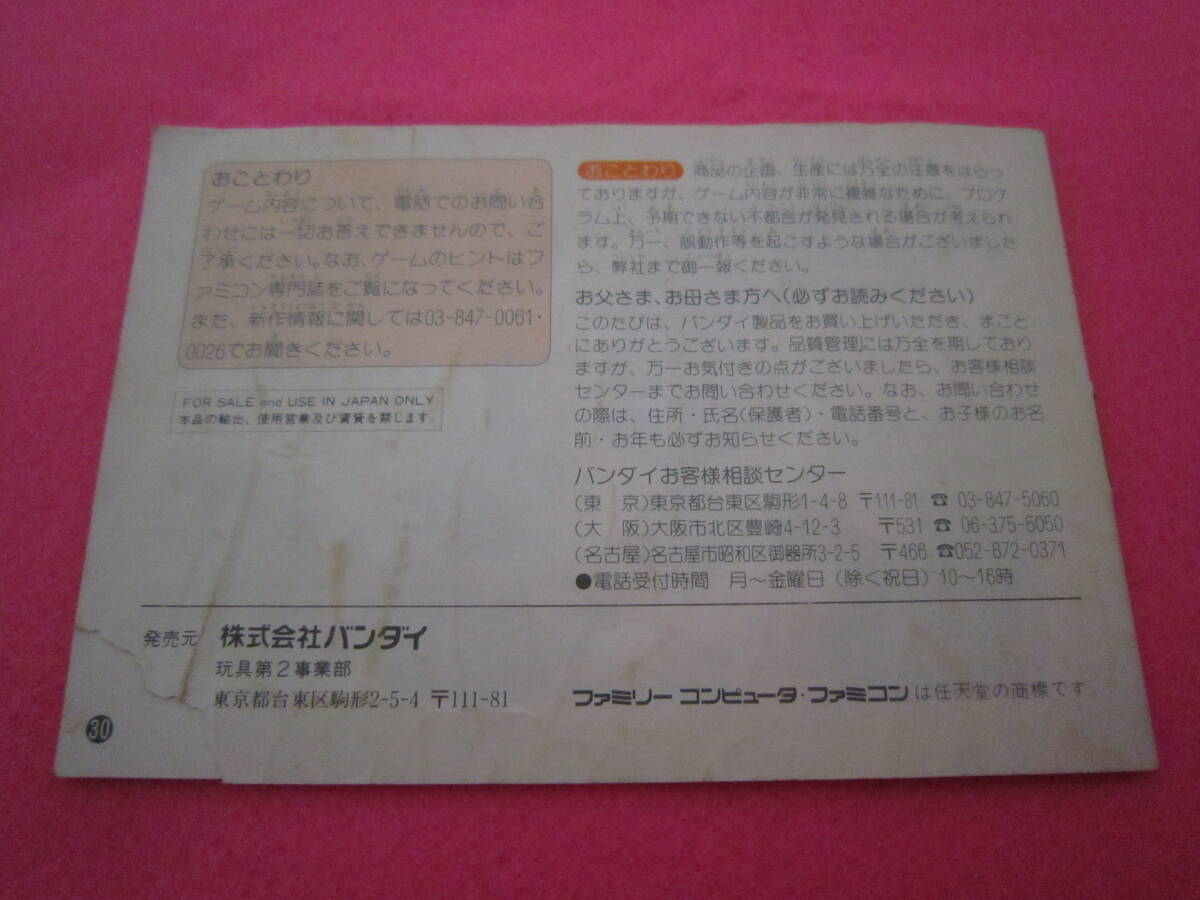 おことわり
ゲーム内容について、電話でのお問い合
わせには一切お答えできませんので、ご
了承ください。なお、ゲームのヒントはフ
ァミコン専門誌をご覧になってください。
また、新作情報に関しては03-847-0061・
0026でお聞きください。
FOR SALE and USE IN JAPAN ONLY
本品の輸出、使用営業及び賃貸を禁じます。
おことわり 商品の企画、生産には万全の注意をはらっ
ておりますが、ゲーム内容が非常に複雑なために、プログ
ラム上、予期できない不都合が発見される場合が考えられ
ます。万一、誤動作等を起こすような場合がございました
ら、弊社まで御一報ください。
お父さま、お母さま方へ(必ずお読みください)
このたびは、バンダイ製品をお買い上げいただき、まこと
にありがとうございます。品質管理には万全を期しており
ますが、万一お気付きの点がございましたら、お客様相談
センターまでお問い合わせください。なお、お問い合わせ
の際は、住所・氏名(保護者)・電話番号と、お子様のお名
前・お年も必ずお知らせください。
バンダイお客様相談センター
(東 京)東京都台東区駒形1-4-8 〒111-81 ☎ 03-847-5060
(大 阪)大阪市北区豊崎4-12-3 〒531 ☎ 06-375-5050
(名古屋)名古屋市昭和区御器所3-2-5 〒466 ☎052-872-0371
●電話受付時間 月〜金曜日(除く祝日)10〜16時
発売元 株式会社バンダイ
玩具第2事業部
東京都台東区駒形2-5-4 〒111-81
ファミリー コンピュータ・ファミコンは任天堂の商標です。
30